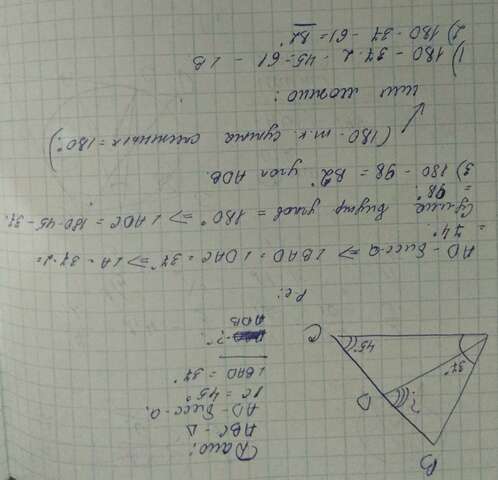 Дано:
ABC - Δ
AD - бисс-а.
∠C = 45°
∠BAD = 37°
?
ADB
B
D
?
37°
45°
C
Р-е:
AD - бисс-а ⇒ ∠BAD = ∠DAC = 37° ⇒ ∠A = 37·2 =
= 74°.
Сумма внутр углов = 180° ⇒ ∠ADC = 180-45-37.
= 98°.
3) 180 - 98 = 82° угол ADB.
(180 - т.к. сумма смежных = 180°.)
или можно:
1) 180 - 37·2 - 45 = 61 - ∠B
2) 180 - 37 - 61 = 82